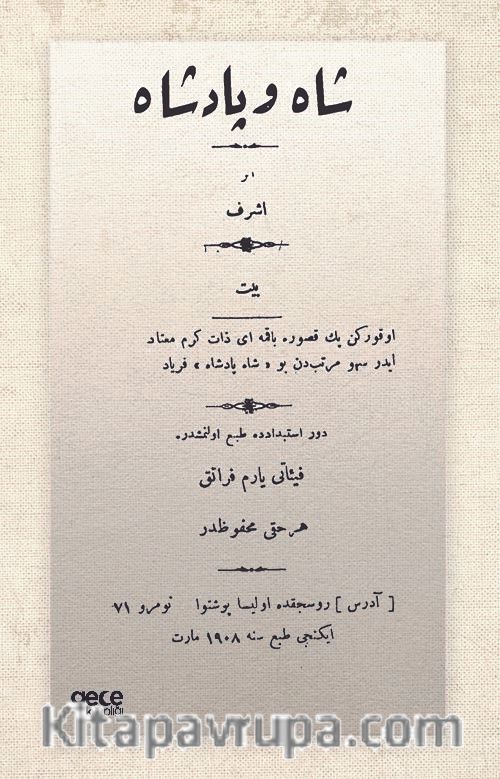 شاه و پادشاه
اثر
اشرف
بيت
اوقوركن پك قصوره باقمه اى ذات كرم معتاد
ايدر سهو مرتب‌دن بو « شاه پادشاه » فرياد
دور استبدادده طبع اولنمشدر.
فيئاتى يارم فرانق
هر حق محفوظدر
[ آدرس ] روسجقده اوليسا پوشتوا نومرو ٧١
ايكنجى طبع سنه ١٩٠٨ مارت
gece
kitaplığı
Kitapavrupa.com